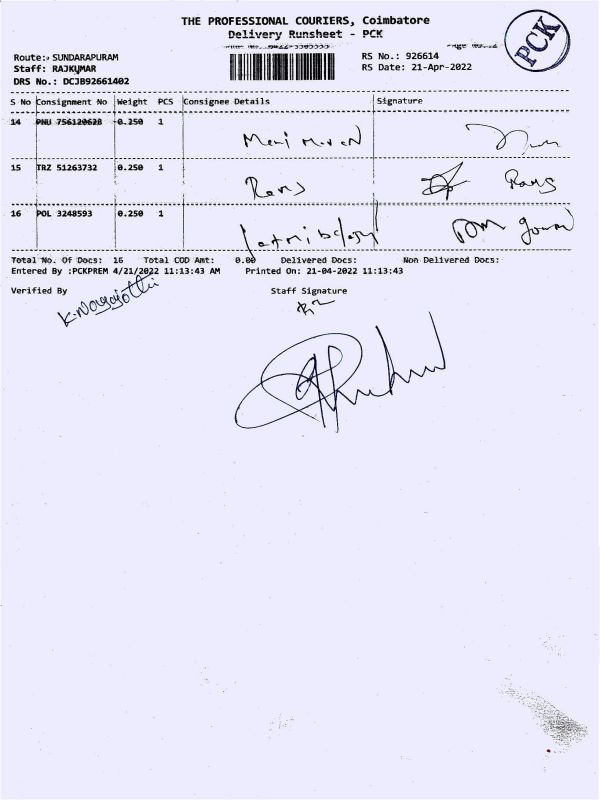 THE PROFESSIONAL COURIERS, Coimbatore
Delivery Runsheet - PCK
PCK
Route: SUNDARAPURAM
Staff: RAJKUMAR
DRS No.: DCJB92661402
RS No.: 926614
RS Date: 21-Apr-2022
S No Consignment No Weight PCS Consignee Details Signature
14 PNU 756120628 0.250 1
15 TRZ 51263732 0.250 1 Rams Rams
16 POL 3248593 0.250 1
Total No. Of Docs: 16 Total COD Amt: 0.00 Delivered Docs: Non Delivered Docs:
Entered By :PCKPREM 4/21/2022 11:13:43 AM Printed On: 21-04-2022 11:13:43
Verified By Staff Signature